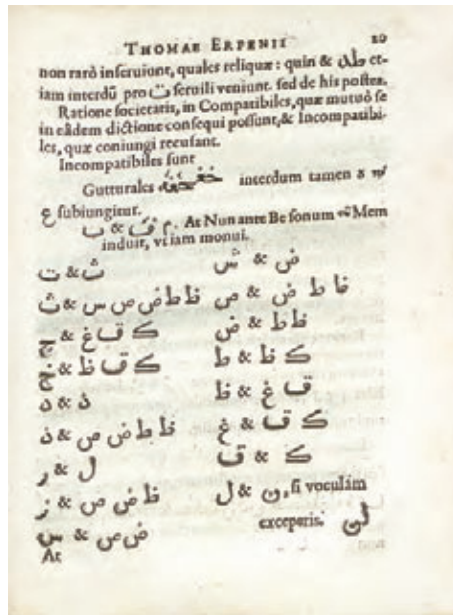 THOMAE ERPENII
non rarò inſeruiunt, quales reliquæ : quin & et-
iam interdũ pro ت ſeruili veniunt. ſed de his poſtea.
Ratione ſocietatis, in Compatibiles, quæ mutuò ſe
in eâdem dictione conſequi poſſunt, & Incompatibi-
les, quæ coniungi recuſant.
Incompatibiles ſunt
Gutturales interdum tamen
ع ſubiungitur.
ب & ف م. At Nun ante Be ſonum Mem
induit, vt iam monui.
ت & ث
ض & ش
ث & س ص ض ط ظ
ص & ض ط ظ
ج & غ ق ك
ض & ط ظ
خ & ظ ق ك
ط & ظ ك
د & ذ
ظ & غ ق
ذ & ص ض ط ظ
غ & ق ك
ر & ل
ق & ك
ز & س ص ض ظ
ل & ن, ſi voculam
س & ص ض
exceperis. لن
At